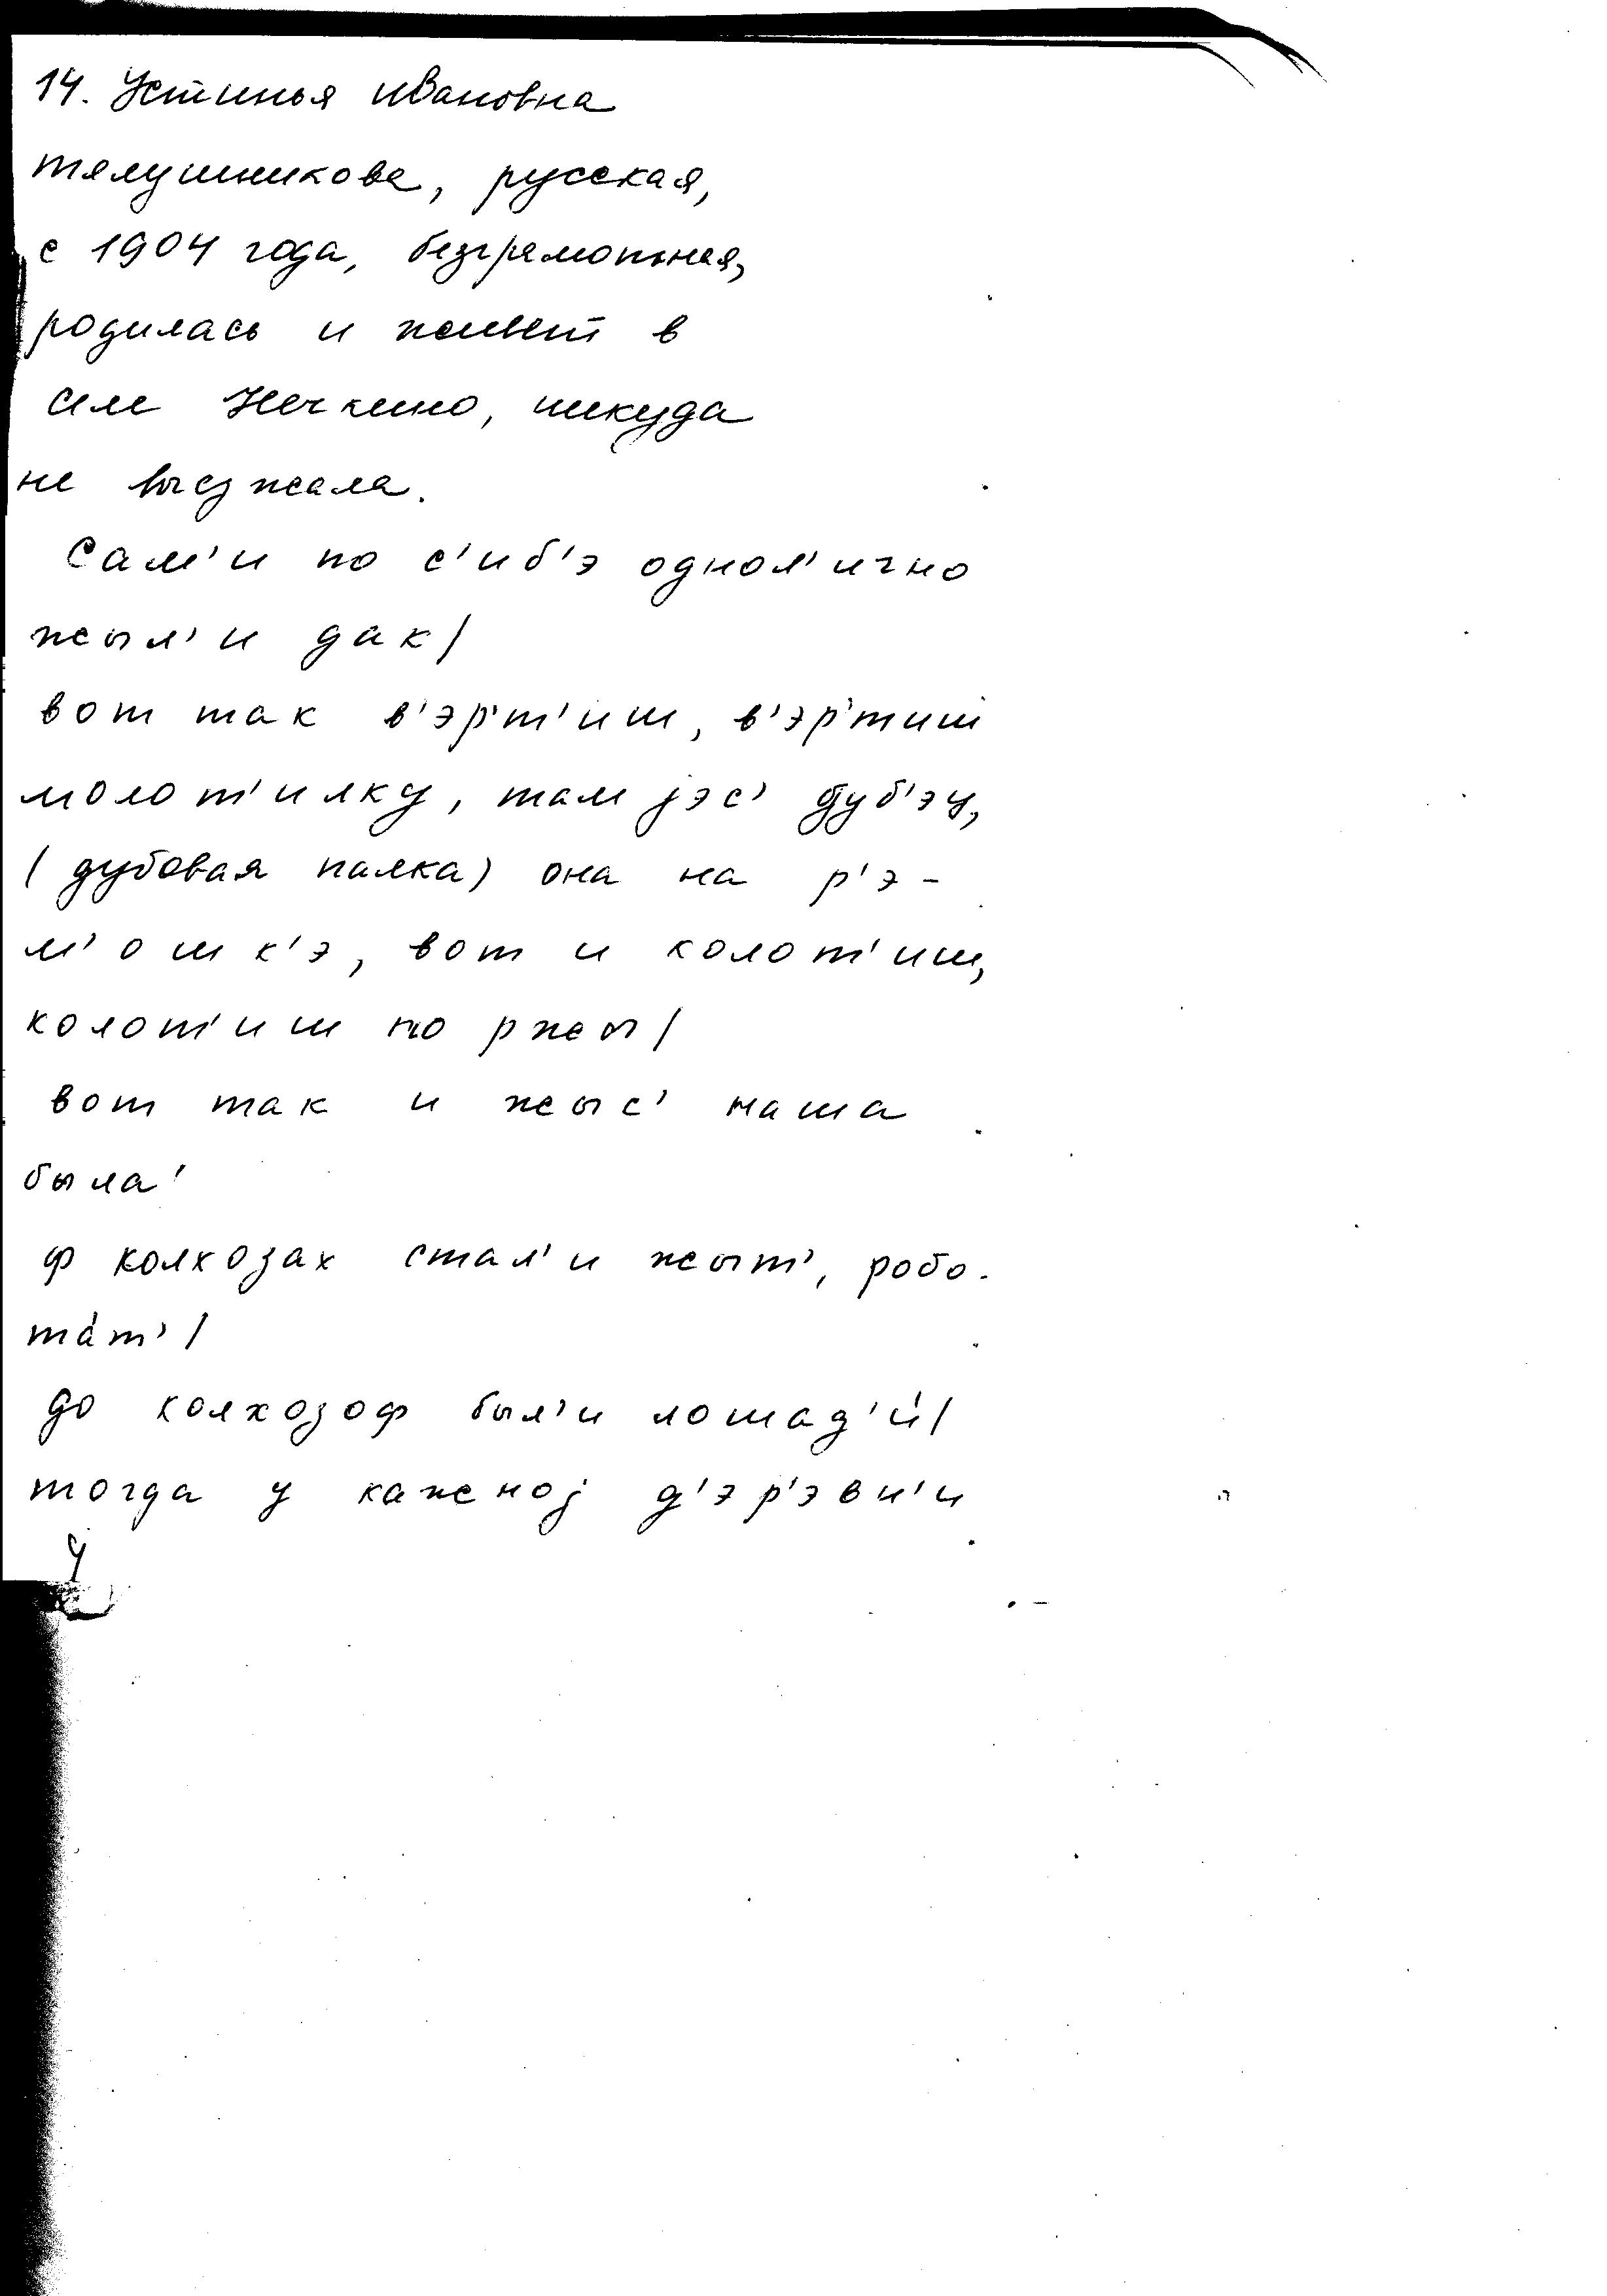 14. Устинья Ивановна
тялушникова, русская,
с 1904 года, безграмотная,
родилась и живет в
селе Нечкино, никуда
не выезжала.
Сам'и по с'иб'э однол'ично
жыл'и дак/
вот так в'эр'т'иш, в'эр'тиш
молот'илку, там jэс' дуб'эц,
(дубовая палка) она на р'э-
м'ошк'э, вот и колот'иш,
колот'иш по ржы/
вот так и жыс' наша
была'
ф колхозах стал'и жыт', робо-
та́т'/
до колхозоф был'и лошад'и́/
тогда у кажноj д'эр'эвн'и